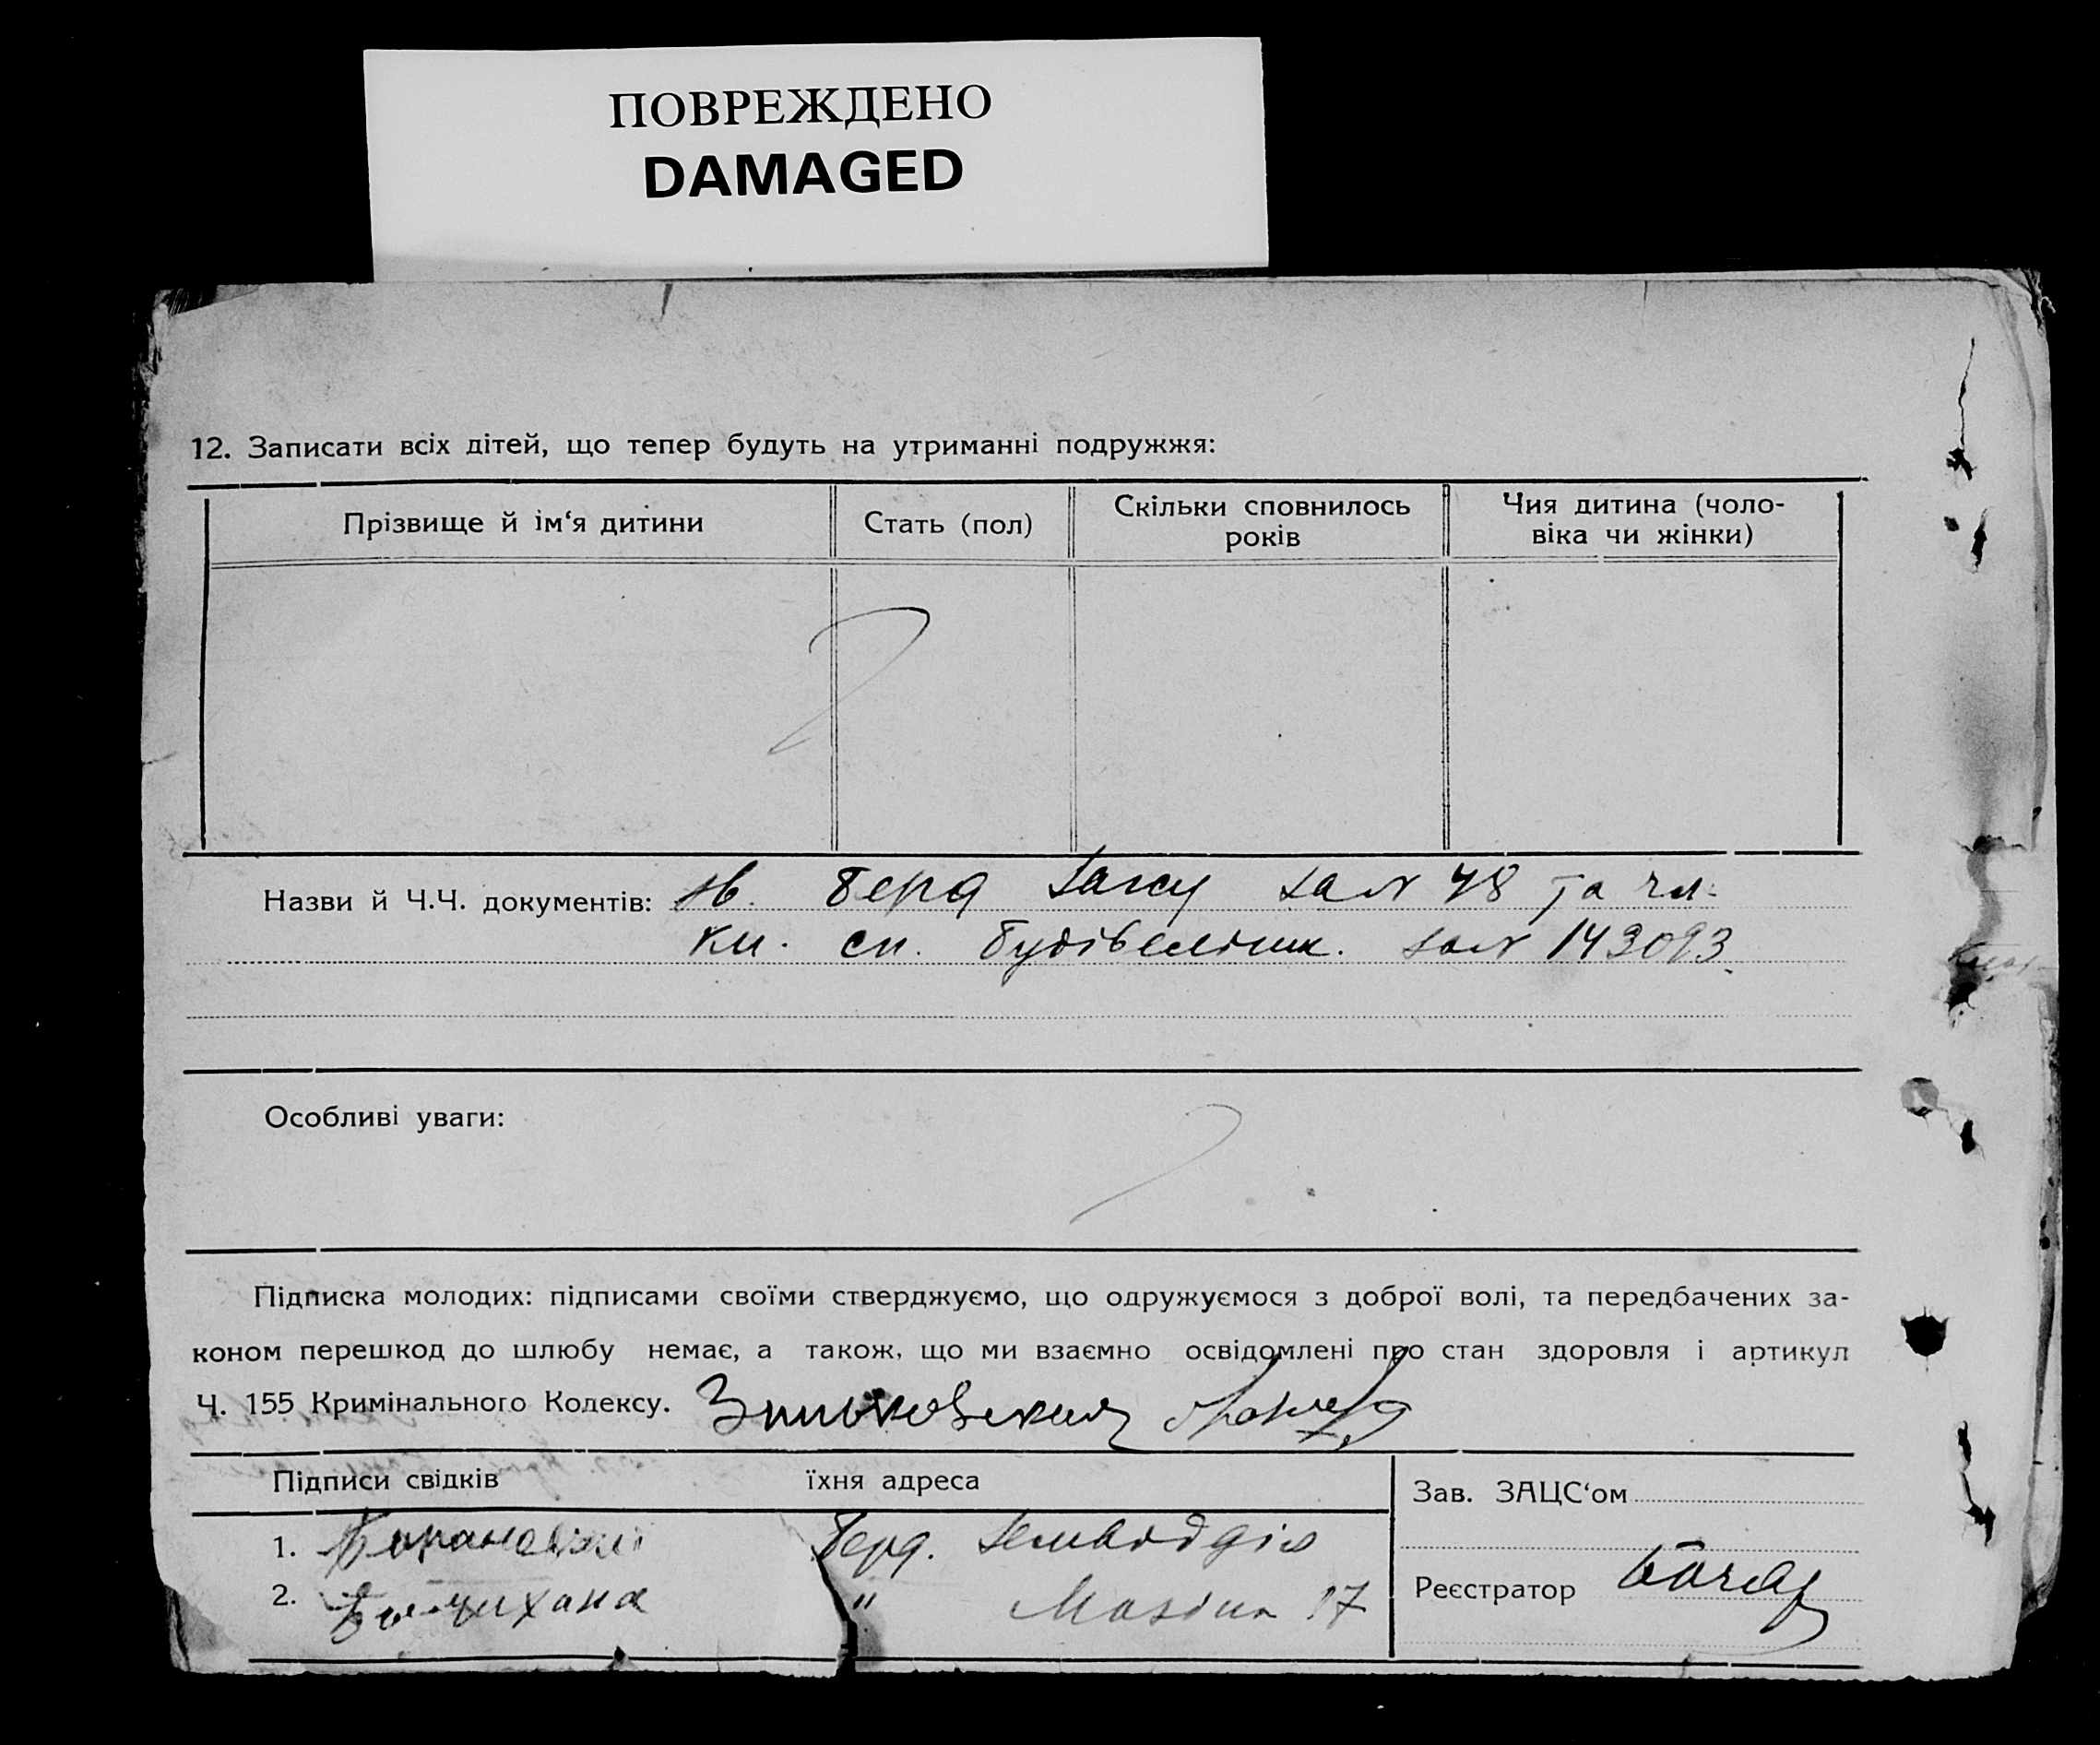 ПОВРЕЖДЕНО
DAMAGED
12. Записати всіх дітей, що тепер будуть на утриманні подружжя:
Прізвище й ім‘я дитини
Стать (пол)
Скільки сповнилось
років
Чия дитина (чоло-
віка чи жінки)
Назви й Ч.Ч. документів: Берд 48 та чл.
кн. сп. будівельник. 143093
Особливі уваги:
Підписка молодих: підписами своїми стверджуємо, що одружуємося з доброї волі, та передбачених за-
коном перешкод до шлюбу немає, а також, що ми взаємно освідомлені про стан здоровля і артикул
Ч. 155 Кримінального Кодексу.
Підписи свідків
їхня адреса
Зав. ЗАЦС‘ом
1. Берд.
2. " 17
Реєстратор